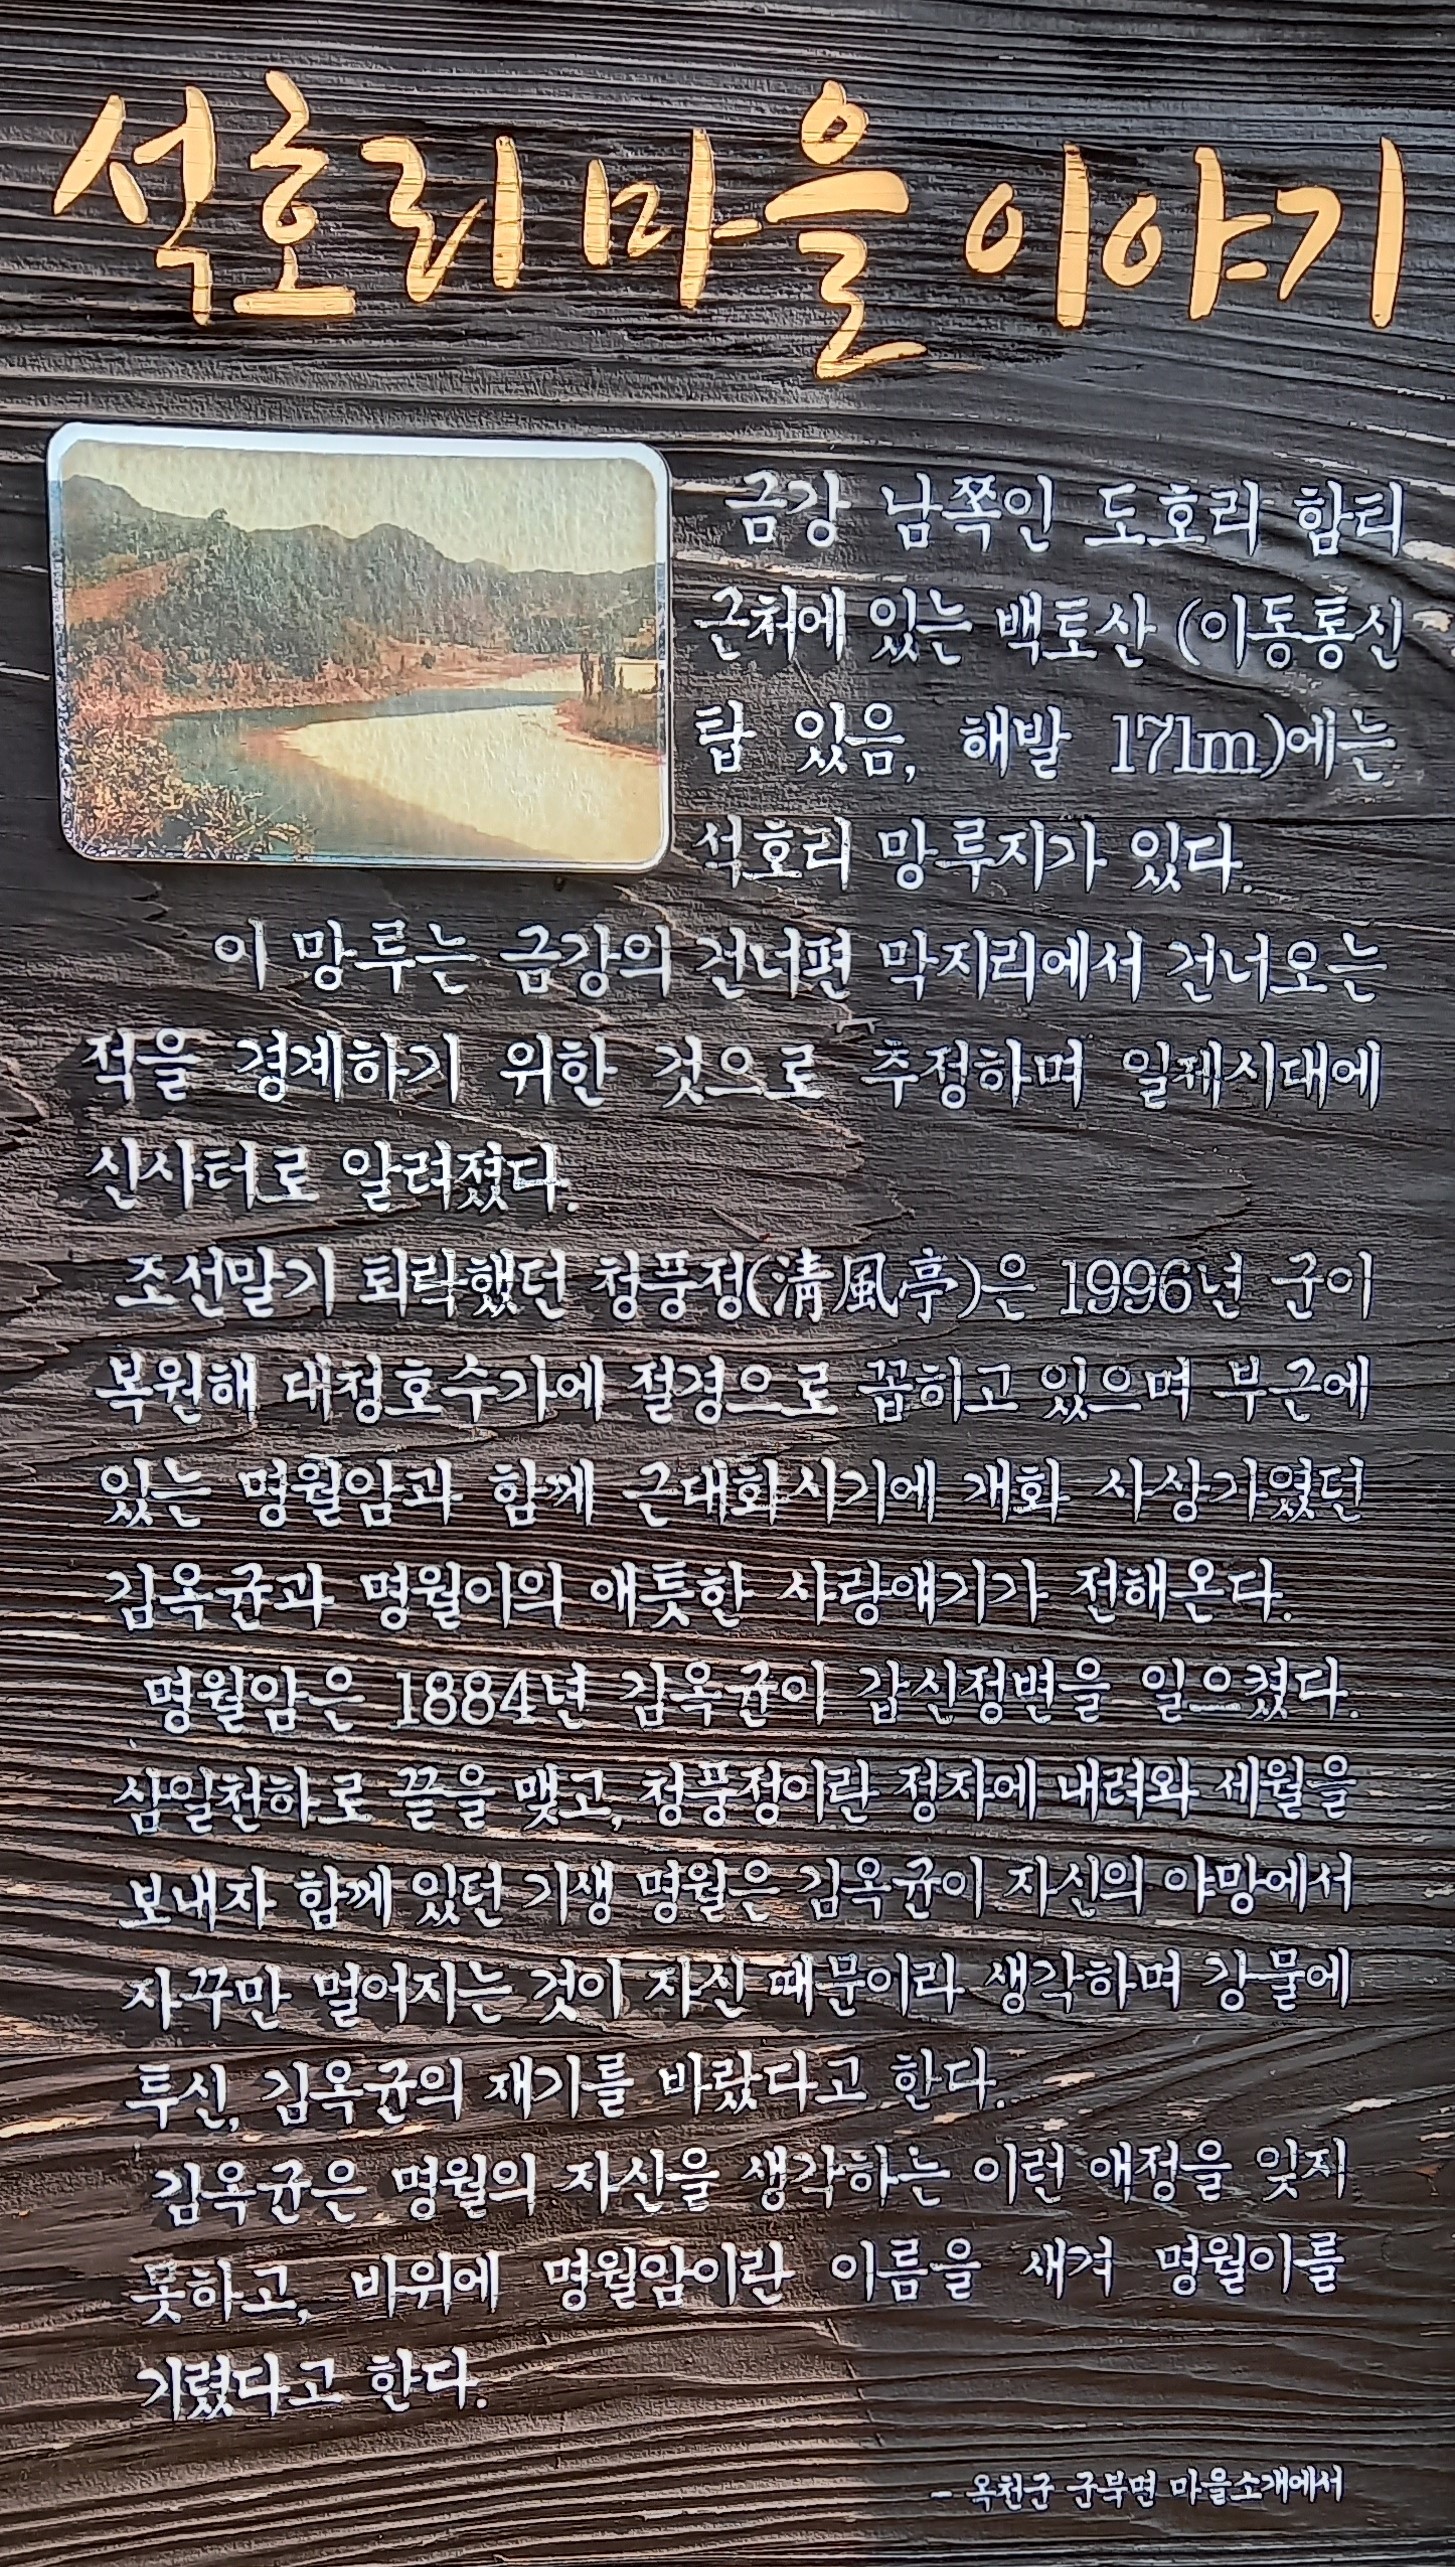 석호리 마을 이야기
금강 남쪽인 도호라 함티
근처에 있는 백토산 (이동통신
탑 있음, 해발 171m)에는
석호리 망루지가 있다.
이 망루는 금강의 건너편 막지리에서 건너오는
적을 경계하기 위한 것으로 추정하며 일제시대에
신사터로 알려졌다.
조선말기 퇴락했던 청풍정(淸風亭)은 1996년 군이
복원해 대청호수가에 절경으로 꼽히고 있으며 부근에
있는 명월암과 함께 근대화시기에 개화 사상가였던
김옥균과 명월이의 애틋한 사랑얘기가 전해온다.
명월암은 1884년 김옥균이 갑신정변을 일으켰다.
삼일천하로 끝을 맺고, 청풍정이란 정자에 내려와 세월을
보내자 함께 있던 기생 명월은 김옥균이 자신의 야망에서
자꾸만 멀어지는 것이 자신 때문이라 생각하며 강물에
투신, 김옥균의 재기를 바랐다고 한다.
김옥균은 명월의 자신을 생각하는 이런 애정을 잊지
못하고, 바위에 명월암이란 이름을 새겨 명월이를
기렸다고 한다.
- 옥천군 군북면 마을소개에서